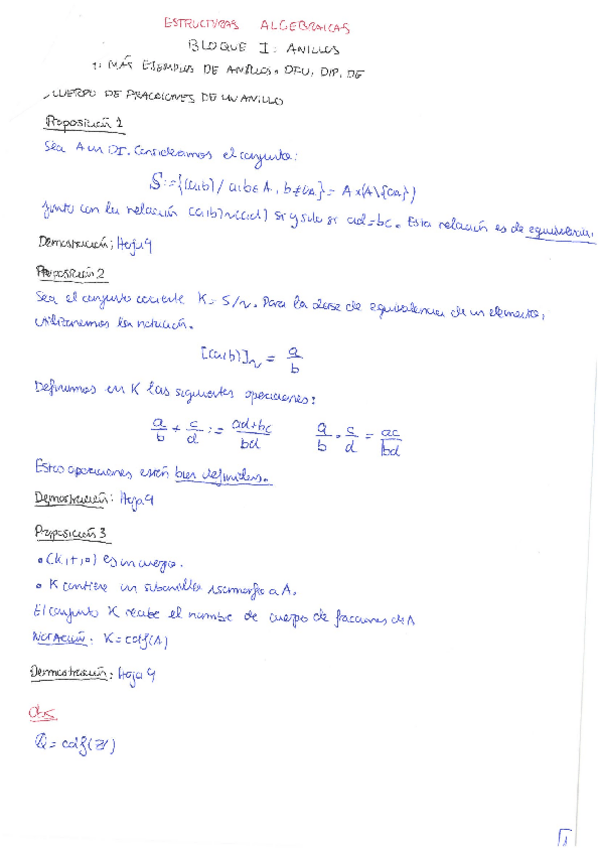 ESTRUCTURAS ALGEBRAICAS
BLOQUE I: ANILLOS
1: MÁS EJEMPLOS DE ANILLOS. DFU, DIP, DE
CUERPO DE FRACCIONES DE UN ANILLO
Proposición 1
Sea A un DI. Consideramos el conjunto:
S:={(a,b) / a,b∈A, b≠0A} = A×(A\{0A})
junto con la relación (a,b)~(c,d) si y solo si ad=bc. Esta relación es de equivalencia.
Demostración: Hoja 4
Proposición 2
Sea el conjunto cociente K = S/~. Para la clase de equivalencia de un elemento,
utilizaremos la notación.
[(a,b)]~ = a/b
Definimos en K las siguientes operaciones:
a/b + c/d := ad+bc/bd a/b · c/d = ac/bd
Estas operaciones están bien definidas.
Demostración: Hoja 4
Proposición 3
• (K,+,·) es un cuerpo.
• K contiene un subanillo isomorfo a A.
El conjunto K recibe el nombre de cuerpo de fracciones de A
NOTACIÓN: K=cdf(A)
Demostración: Hoja 4
Obs
ℚ = cdf(ℤ)
1